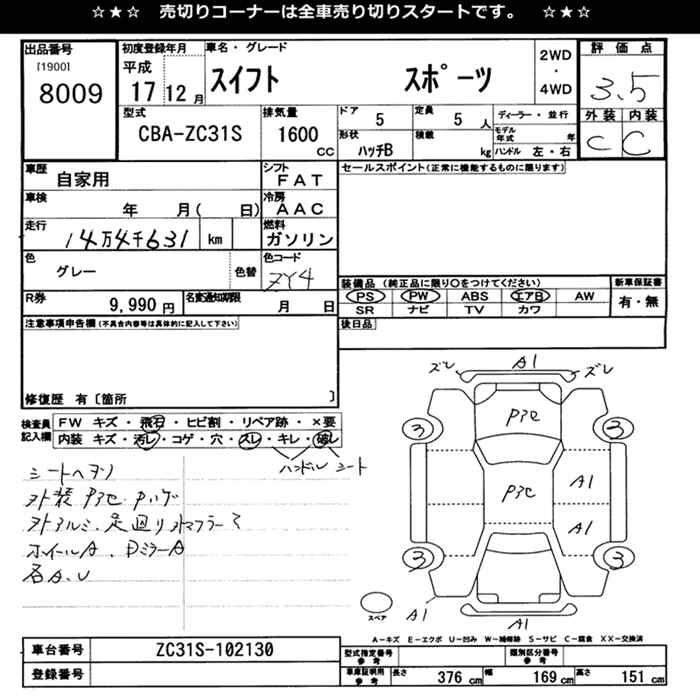 ☆★☆ 売切りコーナーは全車売り切りスタートです。 ☆★☆
出品番号 初度登録年月 車名・グレード 2WD・4WD 評価点
[1900] 8009 平成17 12月 スイフト スポーツ 3.5
外装 内装
C C
型式 排気量 ドア 5 定員 5人 ディーラー・並行
CBA-ZC31S 1600cc 形状 ハッチB 積載 kg モデル年式 年
ハンドル 左・右
車歴 自家用 シフト FAT セールスポイント(正常に機能するものに限ります)
車検 年 月( 日) 冷房 AAC
走行 14万4千631 km 燃料 ガソリン
色 グレー 色替 色コード ZY4
装備品(純正品に限り〇をつけてください) 新車保証書
PS PW ABS エアB AW 有・無
SR ナビ TV カワ
R券 9,990円 名変通知期限 月 日
注意事項申告欄(不具合内容等は具体的に記入して下さい) 後日品
修復歴 有〔箇所 〕
検査員記入欄 FW キズ・飛石・ヒビ割・リペア跡・×要
内装 キズ・汚レ・コゲ・穴・スレ・キレ・破レ
ハンドル シート
シートヘタリ
外装 P3セ Pハゲ
外アルミ、足廻り 外マフラー
ホイールA、DミラーA
各A、U
ズレ A1 ズレ
P3セ
3 3
P3セ A1
A1
3 3
A1 A1
スペア
A-キズ E-エクボ U-凹み W-補修跡 S-サビ C-腐食 XX-交換済
車台番号 ZC31S-102130 型式指定番号 参考 類別区分番号 参考
登録番号 車庫証明用 参考 長さ 376 cm 幅 169 cm 高さ 151 cm